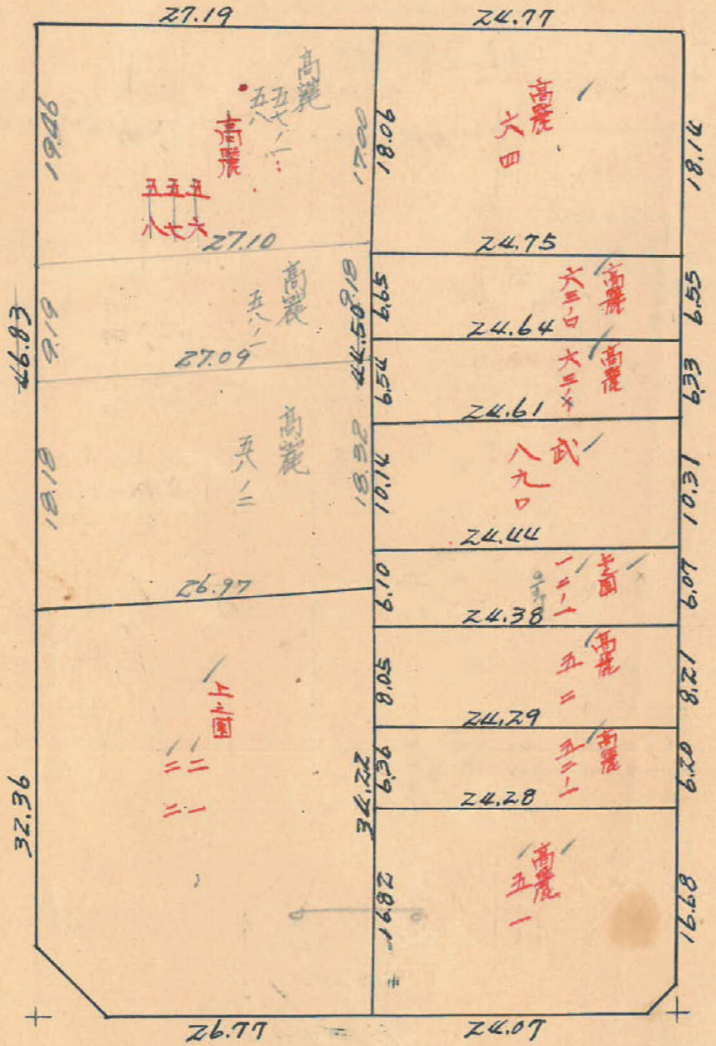 27.19
24.77
19.46
高麗
五七ノ一
五八
高麗
五六
五七
五八
17.00
18.06
高麗
六四
18.14
27.10
24.75
46.83
9.19
高麗
五八ノ一
9.18
44.50
6.65
高麗
六三ノロ
6.55
27.09
24.64
6.54
高麗
六三ノイ
6.33
24.61
18.18
高麗
五八ノ二
18.32
10.14
武
八九〇
10.31
24.44
26.97
6.10
上之園
一二ノ一
6.07
24.38
上之園
二一
二二
8.05
高麗
五二
8.21
24.29
32.36
34.22
6.36
高麗
五二ノ一
6.20
24.28
16.82
高麗
五一
16.68
26.77
24.07